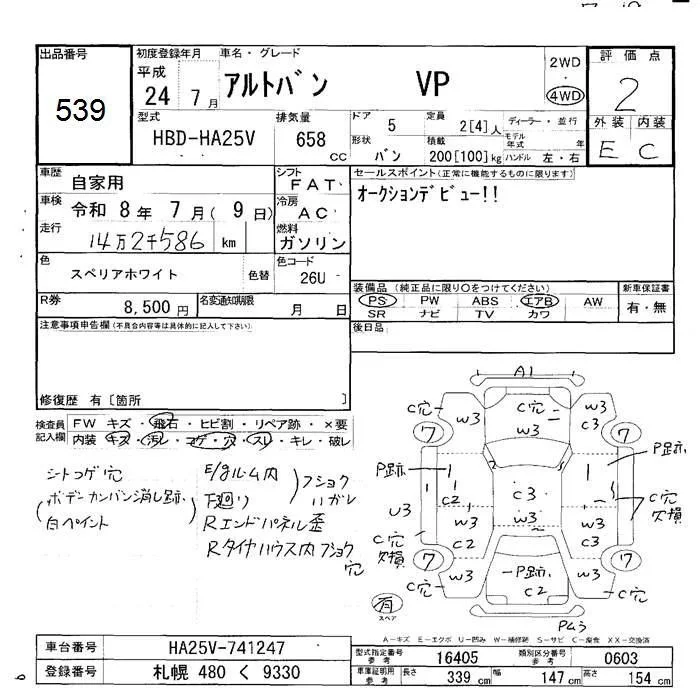 出品番号 539
初度登録年月 平成 24 7月
車名・グレード アルトバン VP
2WD・4WD
評価点 2
外装 内装 E C
型式 HBD-HA25V
排気量 658 CC
ドア 5
定員 2[4]人
ディーラー・並行
モデル年式 年
形状 バン
積載 200[100]kg
ハンドル 左・右
車歴 自家用
シフト FAT
車検 令和 8年 7月( 9日)
冷房 AC
走行 14万2千586 km
燃料 ガソリン
色 スペリアホワイト 色替
色コード 26U
R券 8,500円
名変通知期限 月 日
セールスポイント(正常に機能するものに限ります)
オークションデビュー!!
装備品 (純正品に限り〇をつけてください)
PS PW ABS エアB AW
SR ナビ TV カワ
新車保証書 有・無
後日品
注意事項申告欄(不具合内容等は具体的に記入して下さい)
修復歴 有[箇所 ]
検査員記入欄
FW キズ・飛石・ヒビ割・リペア跡・×要
内装 キズ・汚レ・コゲ・穴・スレ・キレ・破レ
シートコゲ穴
(ボデーカンバン消し跡、
白ペイント)
E/gルーム内
下廻り
)フショク
ハガレ
Rエンドパネル歪
Rタイヤハウス内フショク
穴
A1
C穴 W3 C穴 W3 W3 C3
7 7
P跡 C2 C3 P跡
U3 W3 W3 W3 C穴 欠損
C穴 欠損 C2 C3
7 7
C穴 W3 P跡 C2 W3 C穴
有 スペア
A-キズ E-エクボ U-凹み W-補修跡 S-サビ C-腐食 XX-交換済
車台番号 HA25V-741247
登録番号 札幌 480 く 9330
型式指定番号 参考 16405
類別区分番号 参考 0603
車庫証明用 参考 長さ 339 cm 幅 147 cm 高さ 154 cm